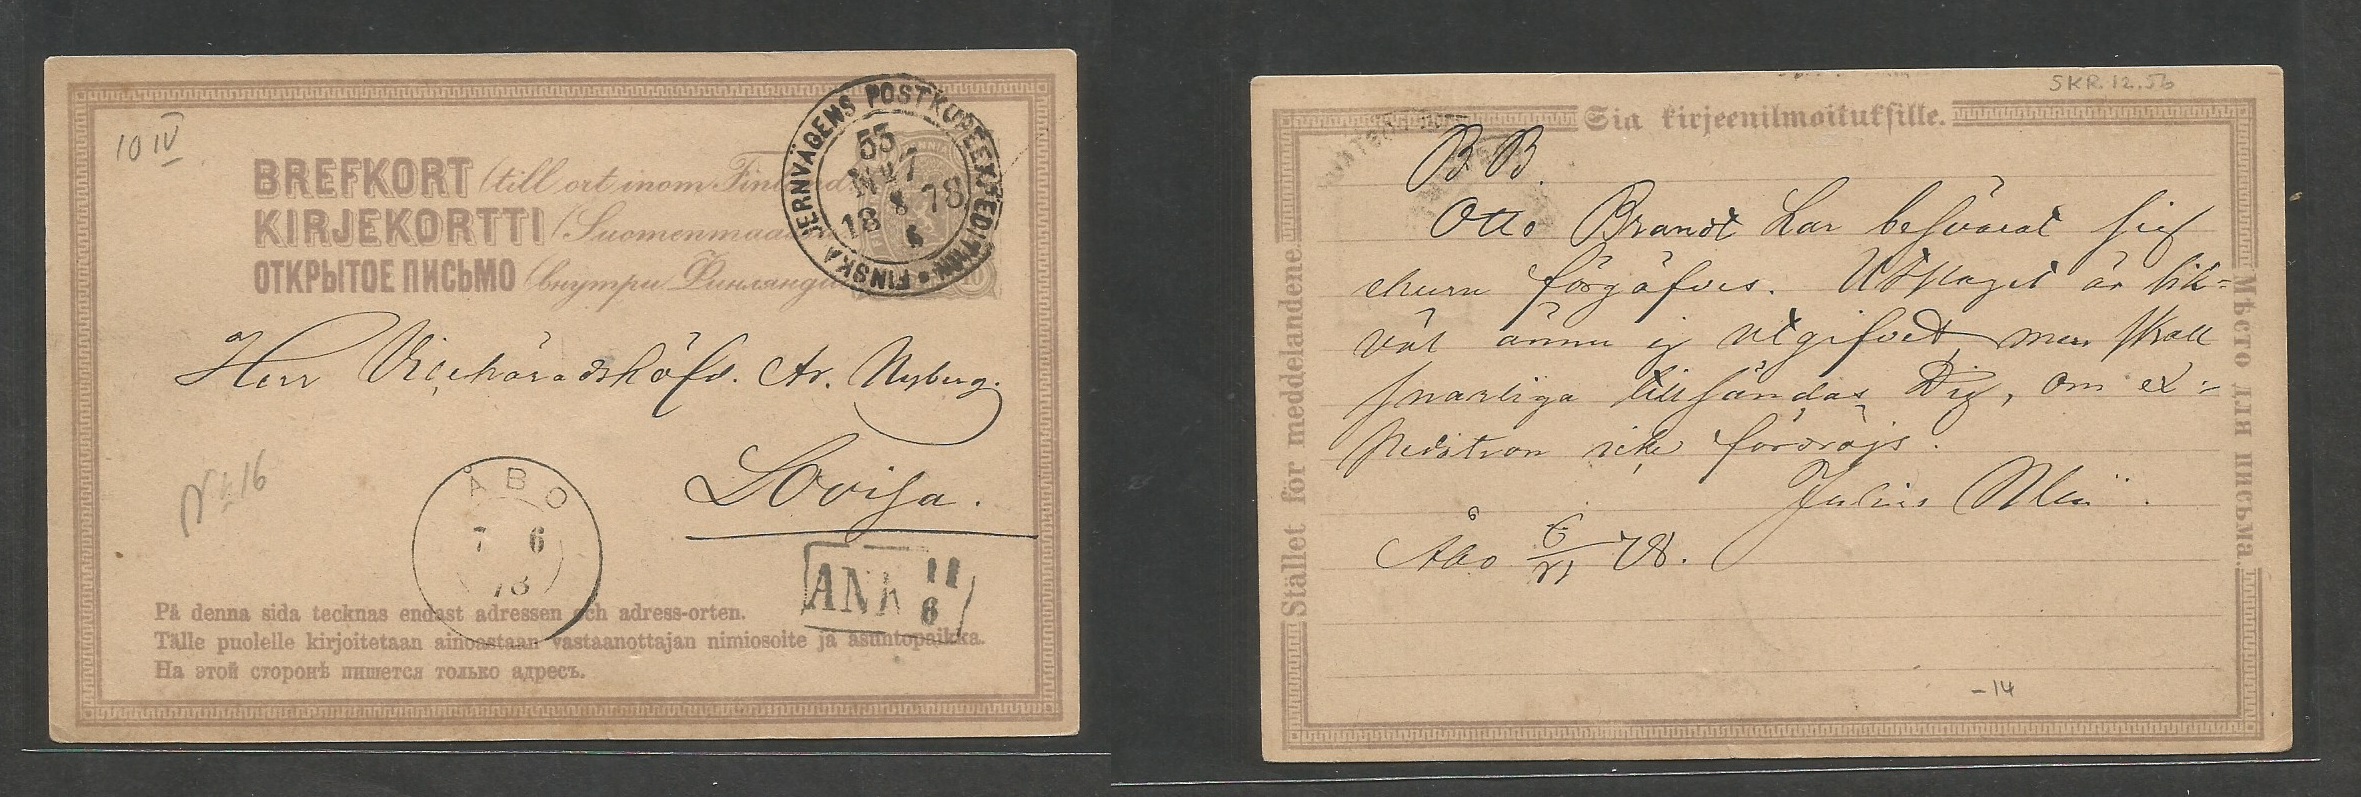 10 IV
BREFKORT (till ort inom Finland
KIRJEKORTTI (Suomenmaa
ОТКРЫТОЕ ПИСЬМО (внутри Финлянди
FINSKA JERNVÄGENS POSTKUPÉEXPEDITION
53
No 1
18 8 78
6
10
Herr Vicehäradshöfd. Ar. Nyberg.
Lovisa.
No 16
ÅBO
7 6
78
ANK 11
6
På denna sida tecknas endast adressen och adress-orten.
Tälle puolelle kirjoitetaan ainoastaan vastaanottajan nimiosoite ja asuntopaikka.
На этой сторонѣ пишется только адресъ.
SKR.12.56
Sia kirjeenilmoituksille.
Stället för meddelandene.
Мѣсто для письма.
B B.
Otto Brandt har besvärat sig
ehuru förgäfves. Utslaget är lik=
väl ännu ej utgifvet men skall
snarliga tillsändas Dig, om ex=
pedition icke fördröjs.
Julius
Åbo 6/VI 78.
-14